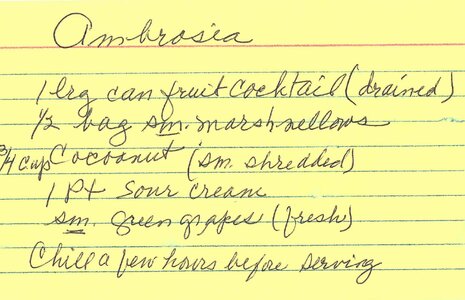 Ambrosia
1 lrg can fruit cocktail (drained)
1/2 bag sm. marshmellows
3/4 cup Cocoanut (sm. shredded)
1 Pt Sour Cream
sm. green grapes (fresh)
Chill a few hours before serving